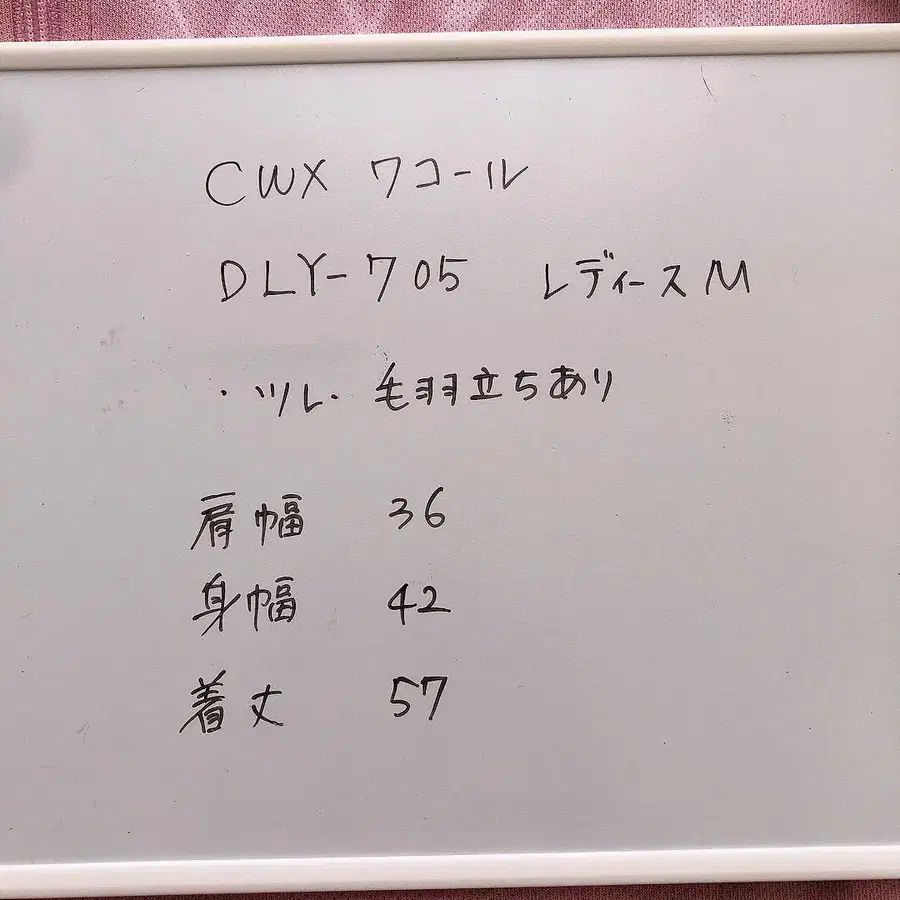 CWX ワコール
DLY-705 レディースM
・ツレ・毛羽立ちあり
肩幅 36
身幅 42
着丈 57